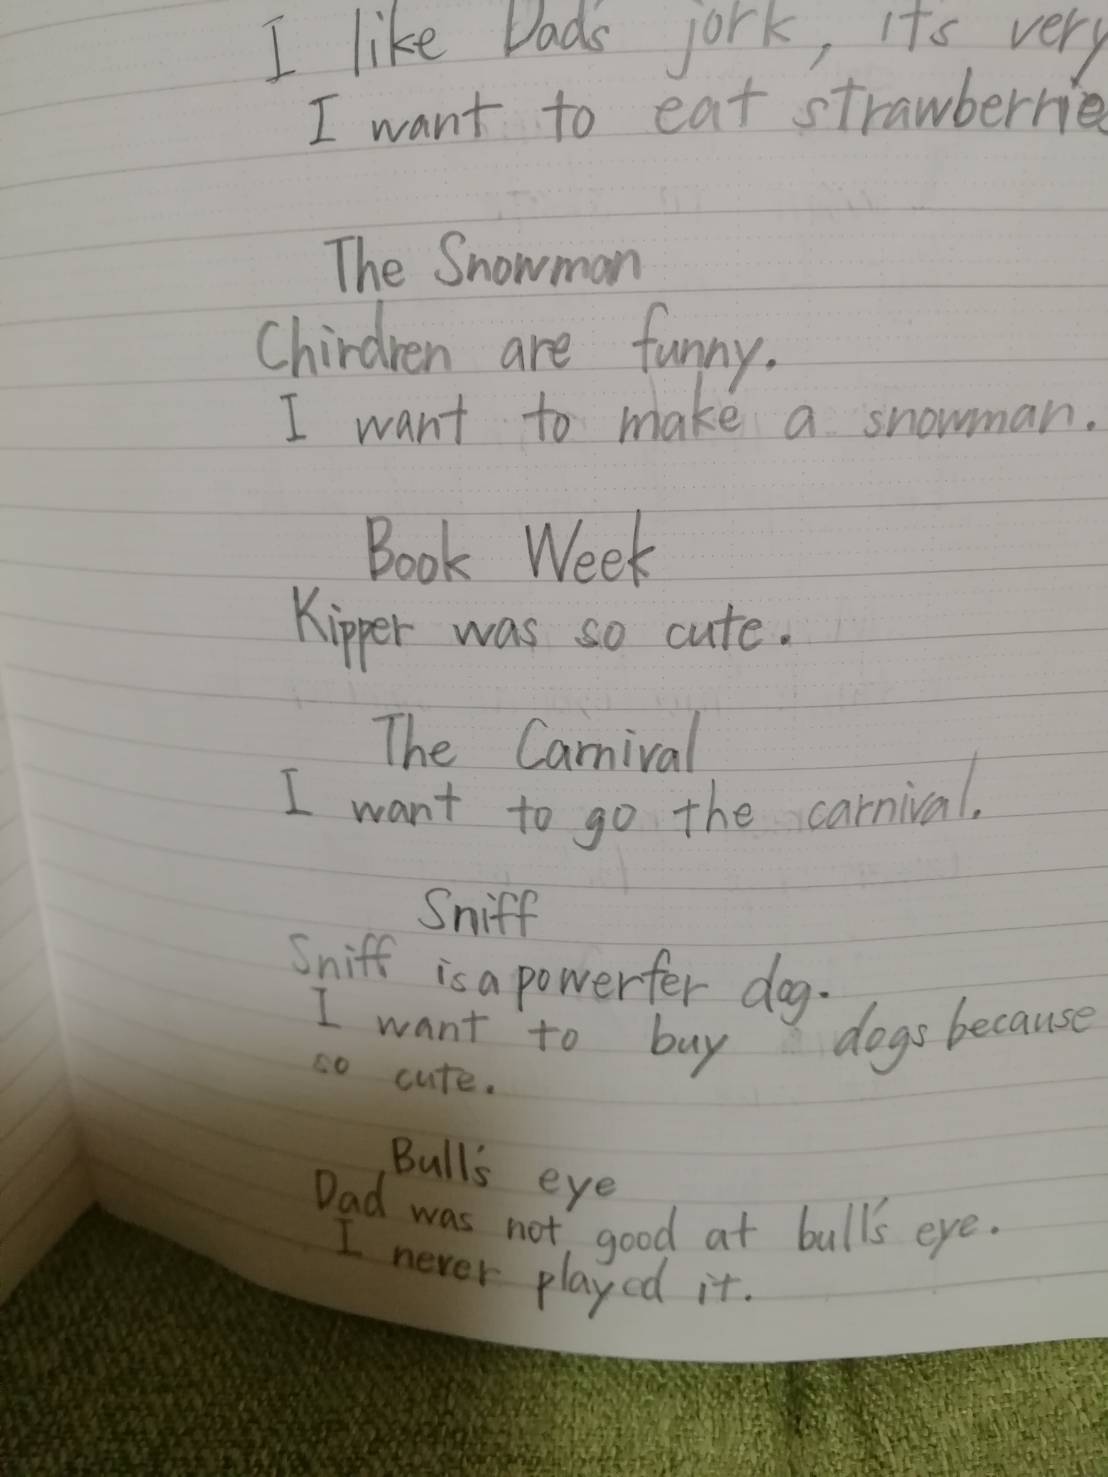 I like Dad's jork, it's very
I want to eat strawberrie
The Snowman
Chirdren are funny.
I want to make a snowman.
Book Week
Kipper was so cute.
The Carnival
I want to go the carnival.
Sniff
Sniff is a powerfer dog.
I want to buy dogs because
so cute.
Bull's eye
Dad was not good at bull's eye.
I never played it.